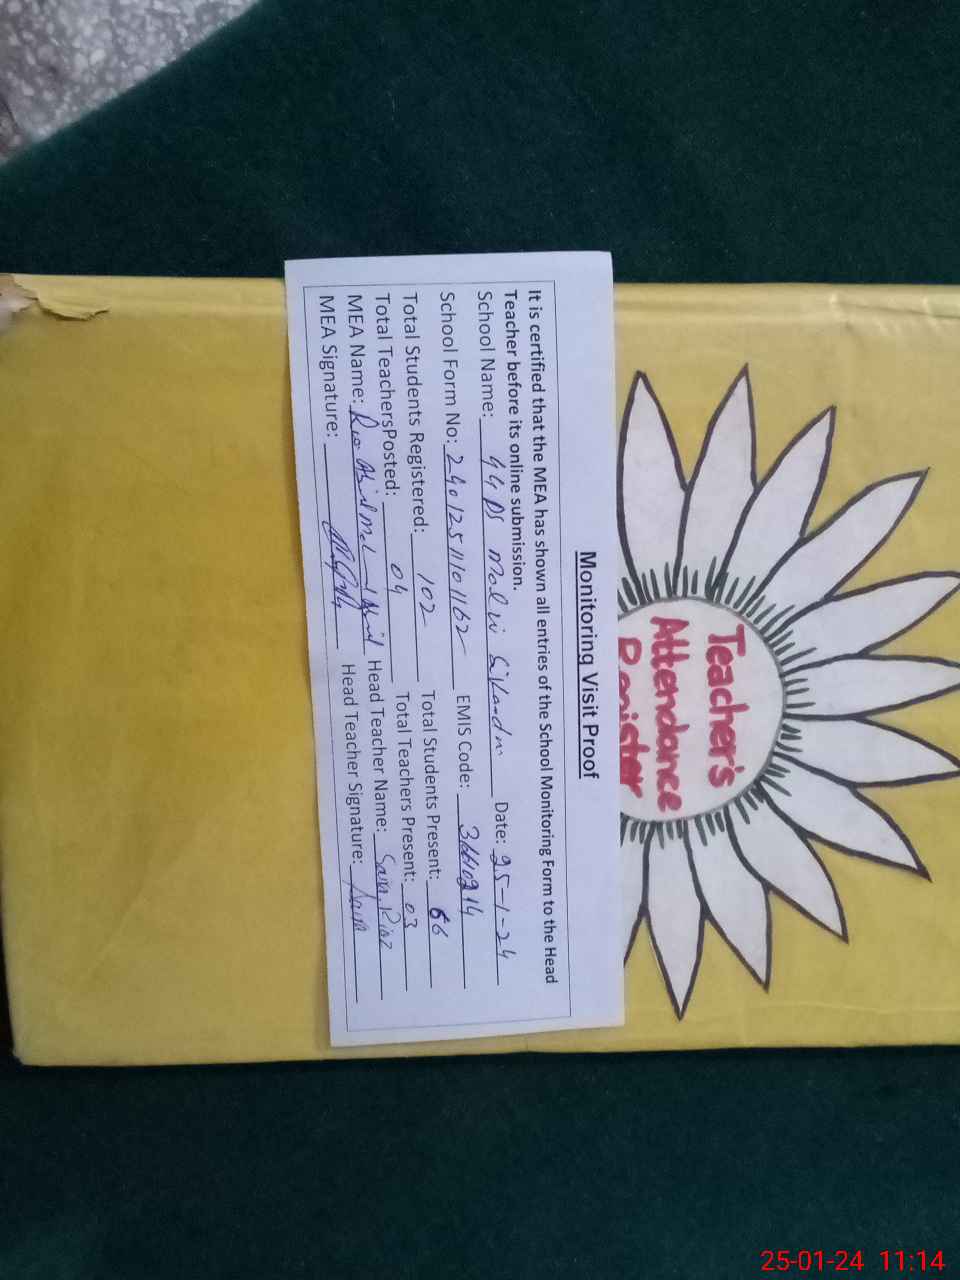 Teacher's
Attendance
Register
Monitoring Visit Proof
It is certified that the MEA has shown all entries of the School Monitoring Form to the Head
Teacher before its online submission.
School Name: Molvi Date: 25-1-24
School Form No: 24012511101162 EMIS Code:
Total Students Registered: 102 Total Students Present: 66
Total TeachersPosted: 04 Total Teachers Present: 03
MEA Name: Head Teacher Name:
MEA Signature: Head Teacher Signature:
25-01-24 11:14